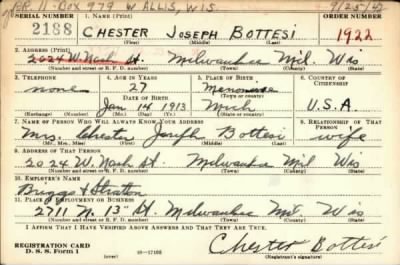 R. 11 - BOX 979 W ALLIS, WIS. 9/25/42
SERIAL NUMBER 1. NAME (Print) ORDER NUMBER
2188 CHESTER JOSEPH BOTTESI 1922
(First) (Middle) (Last)
2. ADDRESS (Print)
2024 W. Nash St. Milwaukee Mil. Wis
(Number and street or R. F. D. number) (Town) (County) (State)
3. TELEPHONE 4. AGE IN YEARS 5. PLACE OF BIRTH 6. COUNTRY OF CITIZENSHIP
none 27 Menominee
DATE OF BIRTH (Town or county)
Jan 14 1913 Mich U.S.A.
(Exchange) (No.) (Mo.) (Day) (Yr.) (State or country)
7. NAME OF PERSON WHO WILL ALWAYS KNOW YOUR ADDRESS 8. RELATIONSHIP OF THAT PERSON
Mrs. Chester Joseph Bottesi wife
(Mr., Mrs., Miss) (First) (Middle) (Last)
9. ADDRESS OF THAT PERSON
2024 W. Nash St. Milwaukee Mil Wis
(Number and street or R. F. D. number) (Town) (County) (State)
10. EMPLOYER'S NAME
Briggs & Stratton
11. PLACE OF EMPLOYMENT OR BUSINESS
2711 N. 13th St. Milwaukee Mil Wis
(Number and street or R. F. D. number) (Town) (County) (State)
I AFFIRM THAT I HAVE VERIFIED ABOVE ANSWERS AND THAT THEY ARE TRUE.
REGISTRATION CARD Chester Bottesi
D. S. S. Form 1 (over) 16—17105 (Registrant's signature)